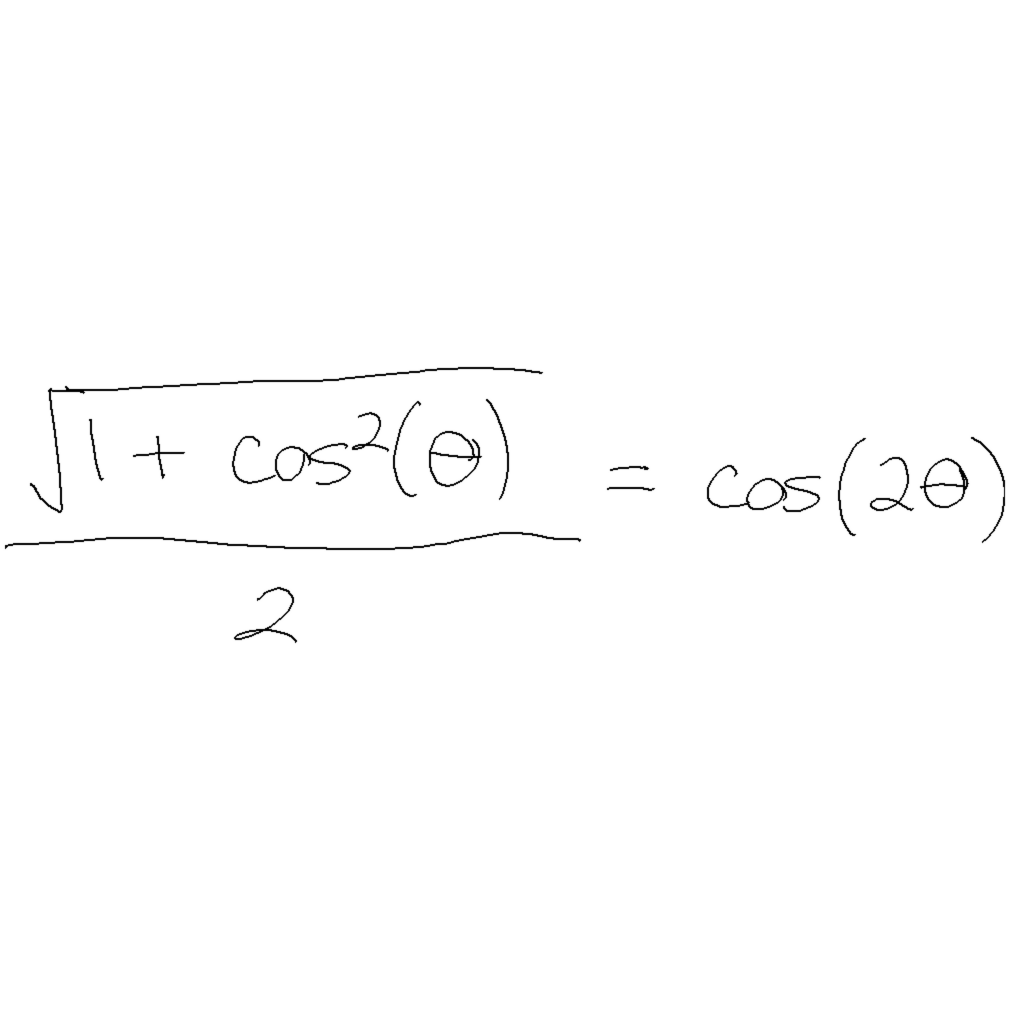 \frac{\sqrt{1 + \cos^2(\theta)}}{2} = \cos(2\theta)